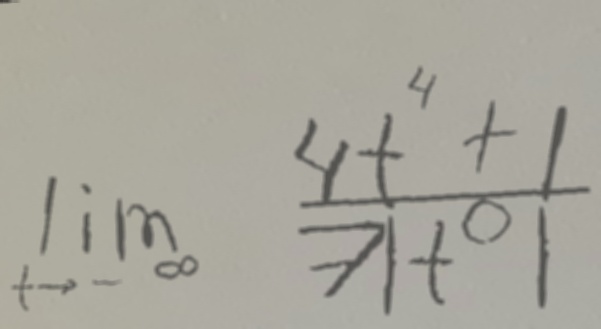 lim t→-∞ (4t⁴ + 1) / (7|t⁰|)